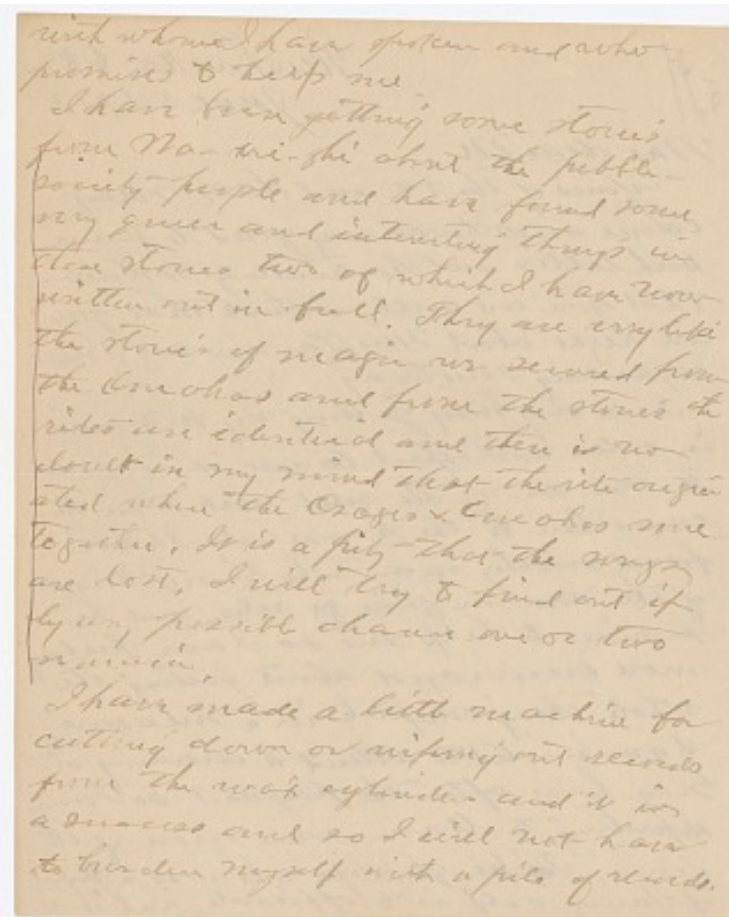 with whom I have spoken and who
promises to help me.
I have been getting some stories
from about the pebble
society people and have found some
very queer and interesting things in
those stories two of which I have now
written out in full. They are very like
the stories of magic we secured from
the Omahas and from the stories the
rites are identical and there is no
doubt in my mind that the rite origin
ated when the Osages & Omahas were
together. It is a pity that the songs
are lost. I will try to find out if
by any possible chance one or two
remain.
I have made a little machine for
cutting down or wiping out records
from the wax cylinders and it is
a success and so I will not have
to burden myself with a pile of records.